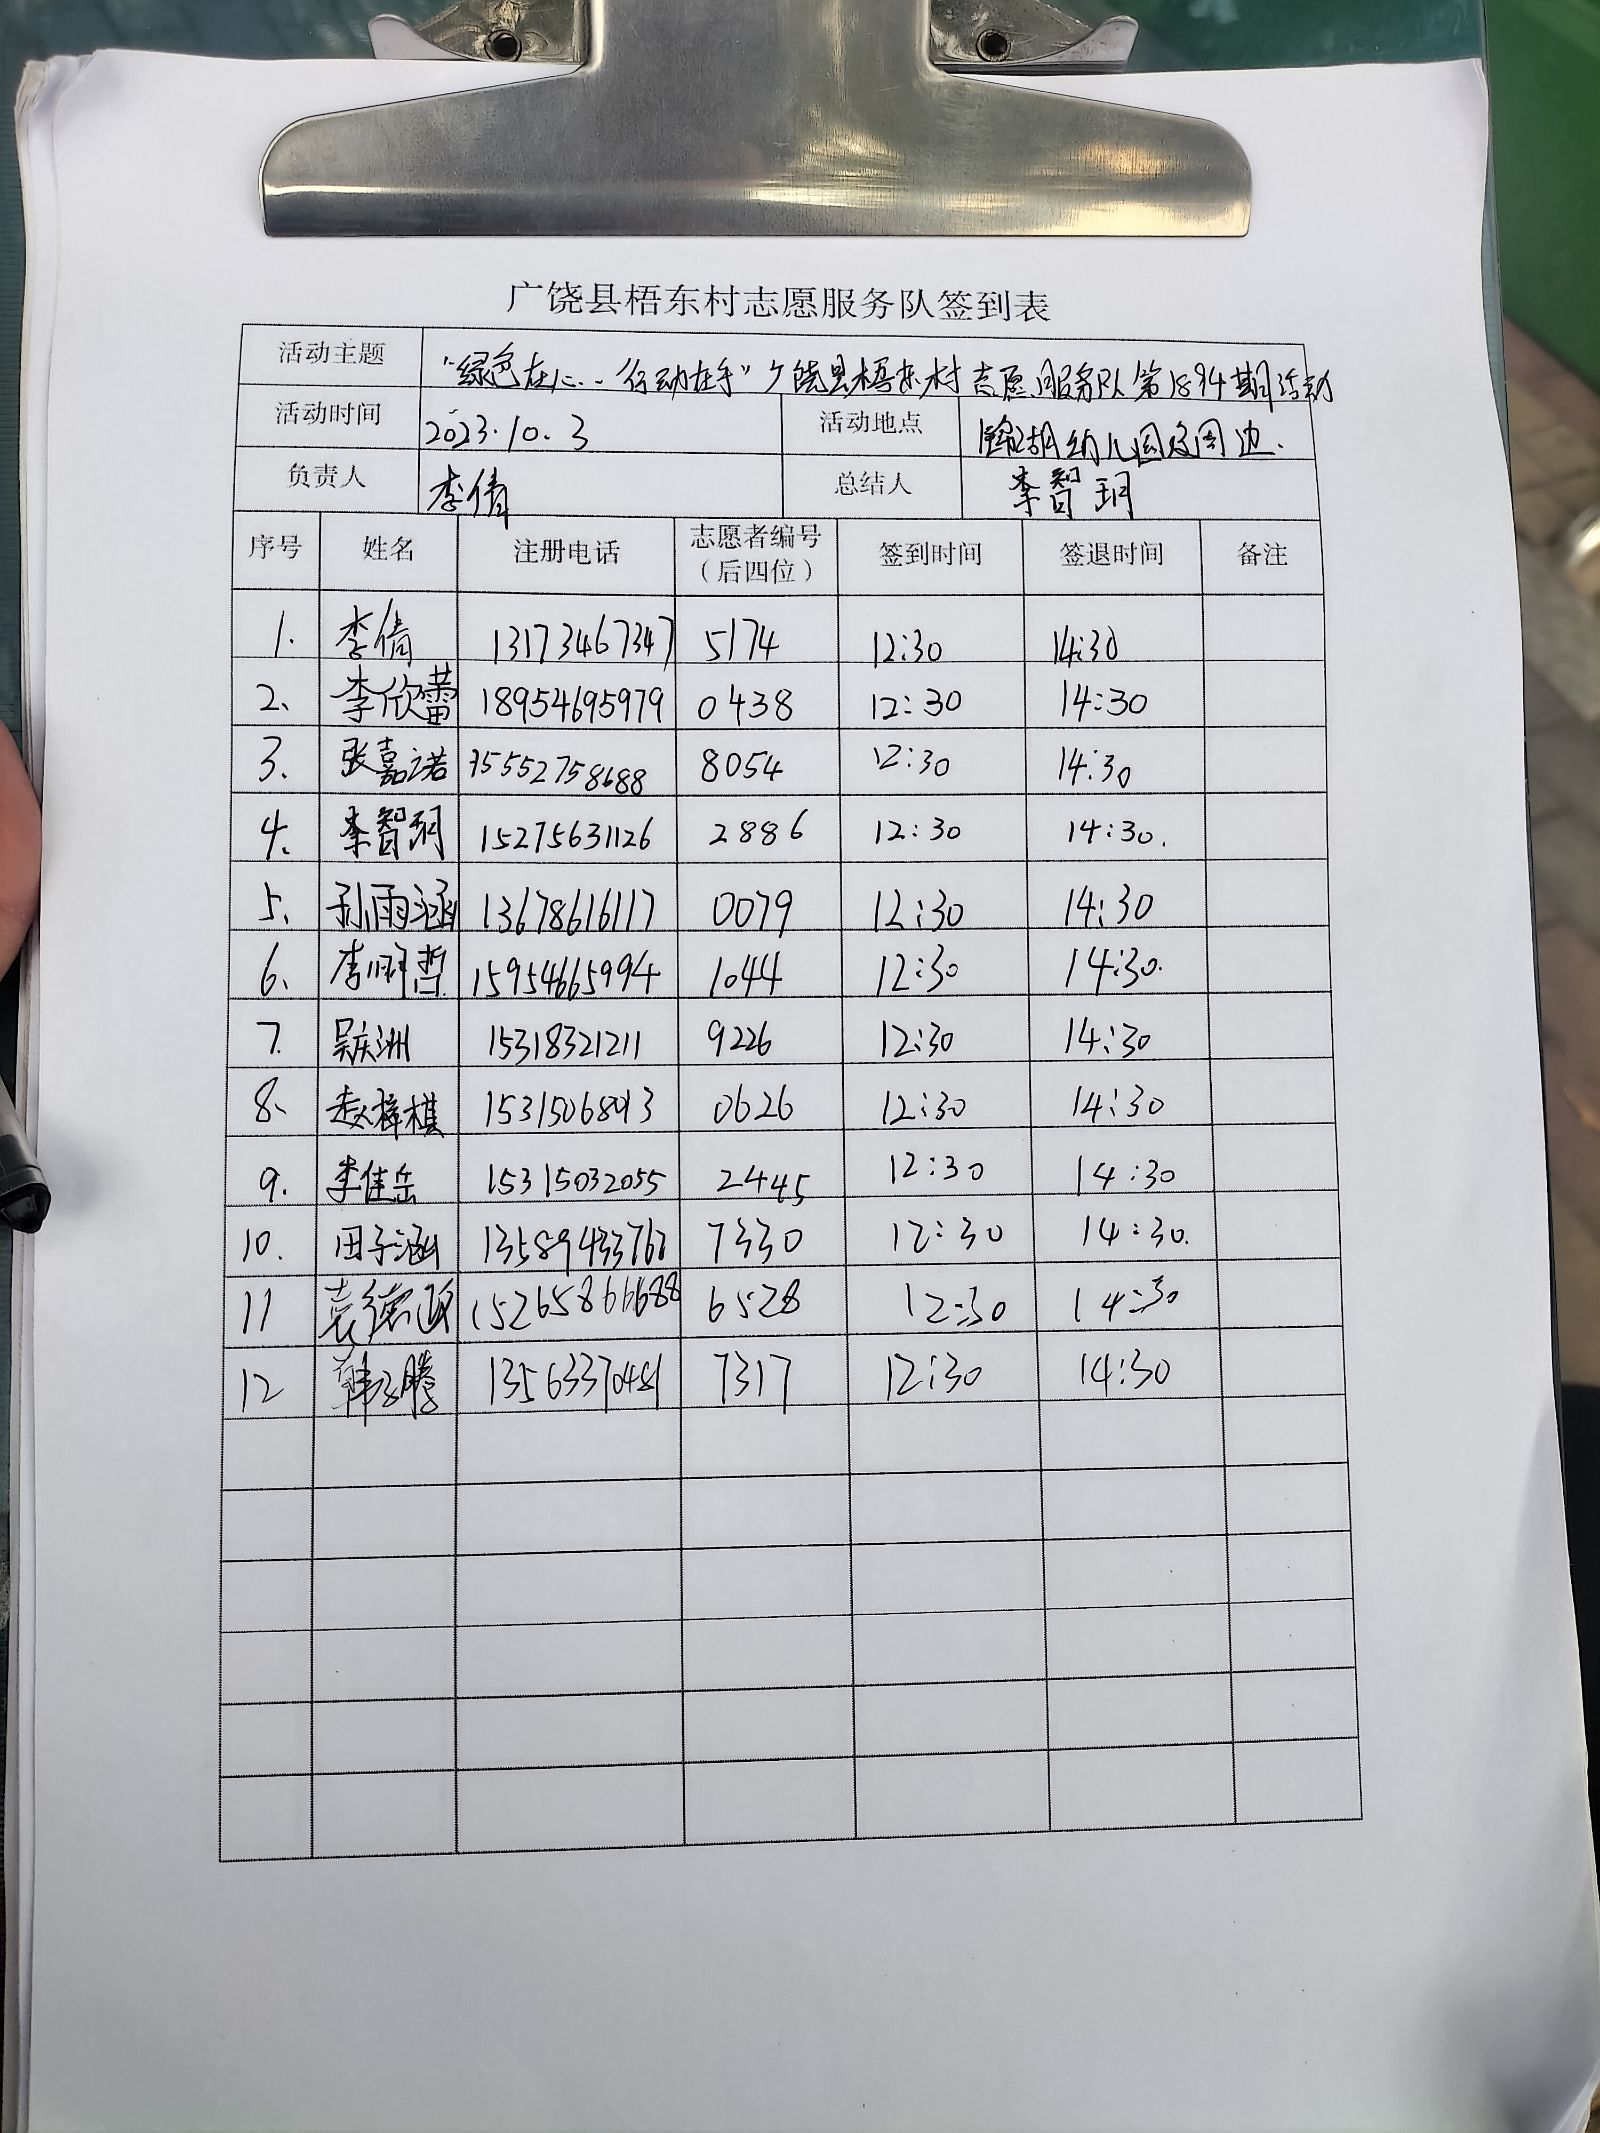 广饶县梧东村志愿服务队签到表
活动主题 “绿色在心..行动在手”广饶县梧东村志愿服务队第1894期活动
活动时间 2023.10.3 活动地点 锦湖幼儿园及周边.
负责人 李倩 总结人 李智玥
序号 姓名 注册电话 志愿者编号（后四位） 签到时间 签退时间 备注
1. 李倩 13173467347 5174 12:30 14:30
2、 李欣蕾 18954695979 0438 12:30 14:30
3、 张嘉诺 15552758688 8054 12:30 14:30
4、 李智玥 15275631126 2886 12:30 14:30.
5、 孙雨涵 13678616117 0079 12:30 14:30
6、 李明哲 15954665994 1044 12:30 14:30.
7. 吴庆洲 15318321211 9226 12:30 14:30
8、 赵梓棋 15315068013 0626 12:30 14:30
9. 李佳岳 15315032055 2445 12:30 14:30
10. 田子涵 7330 12:30 14:30.
11 袁德政 6528 12:30 14:30
12 7317 12:30 14:30